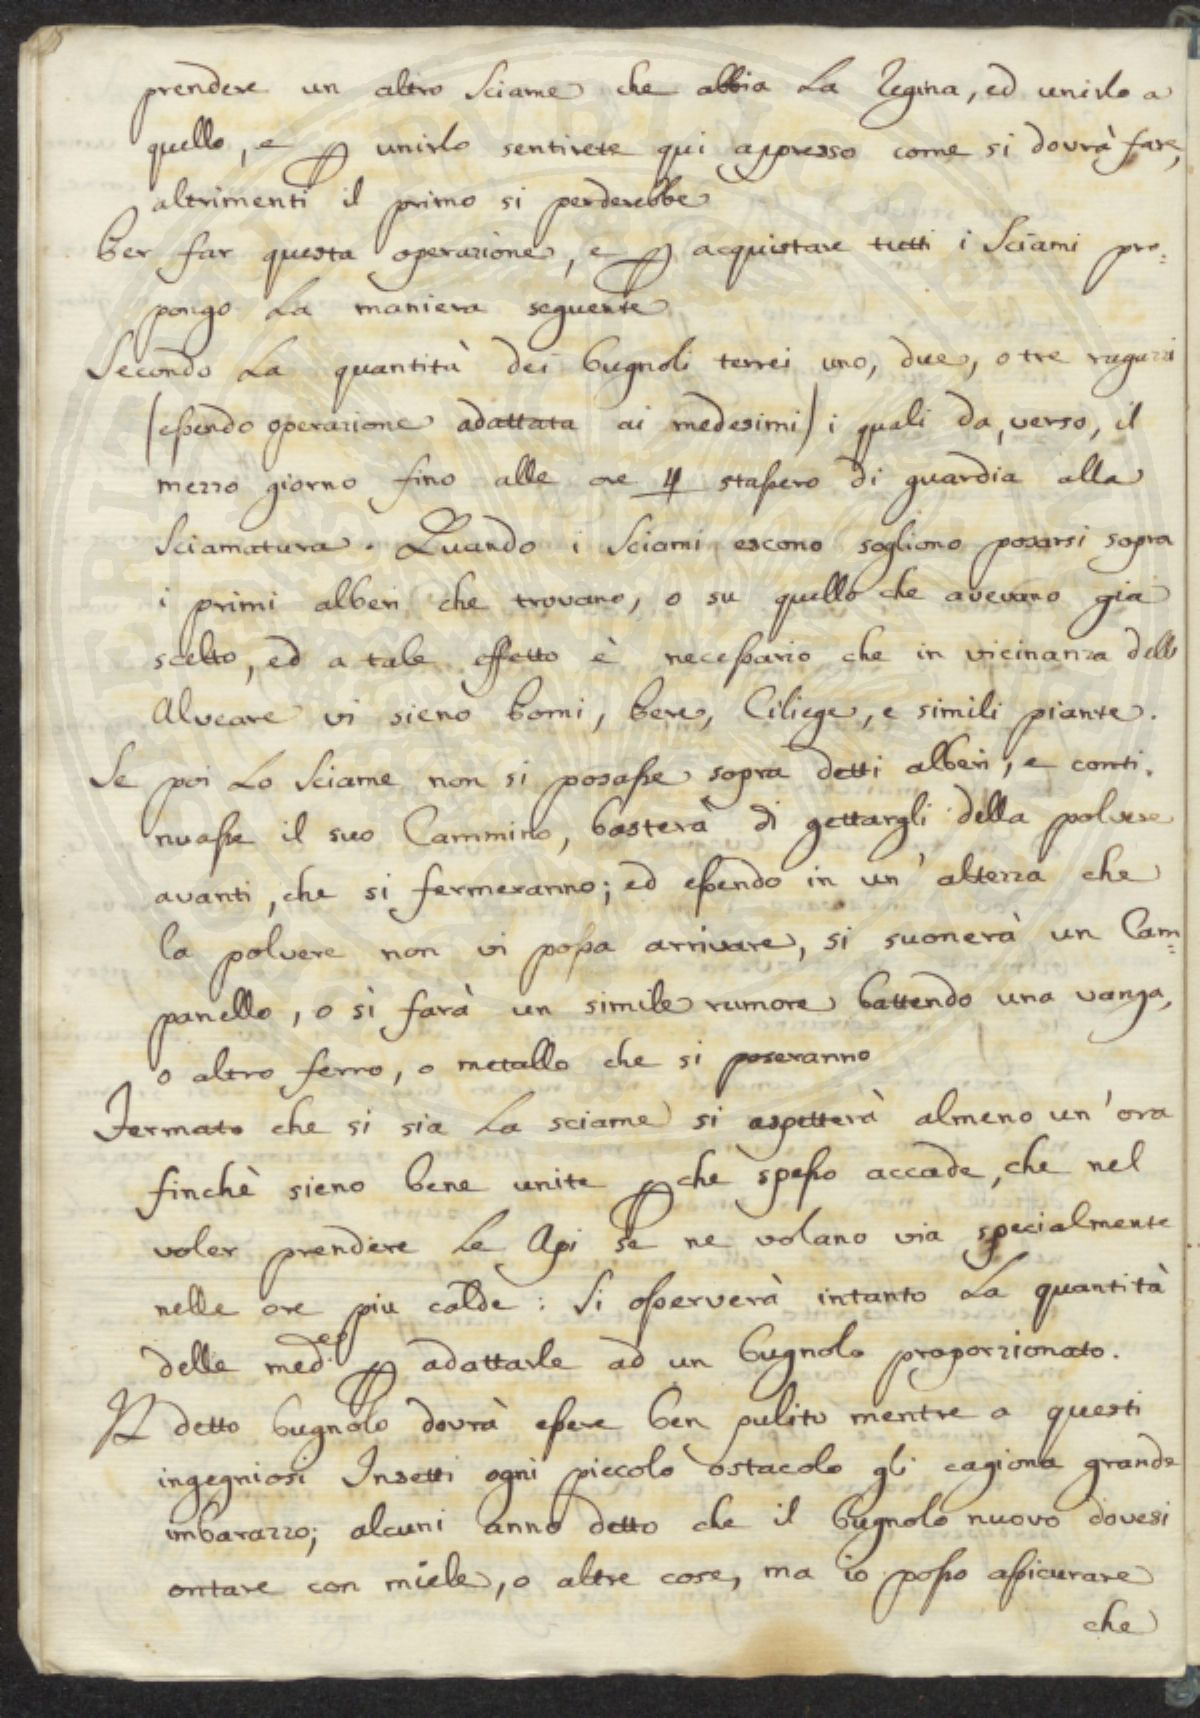 prendere un altro Sciame che abbia La Regina, ed unirlo a
quello, e p unirlo sentirete qui appresso come si dovrà fare,
altrimenti il primo si perderebbe
Per far questa operazione, e p acquistare tutti i Sciami pro=
pongo La maniera seguente
Secondo La quantità dei bugnoli terrei uno, due, o tre ragazzi
(essendo operazione adattata ai medesimi) i quali da, verso, il
mezzo giorno fino alle ore 4 stassero di guardia alla
Sciamatura. Quando i Sciami escono sogliono posarsi sopra
i primi alberi che trovano, o su quello che avevano già
scelto, ed a tale effetto è necessario che in vicinanza dello
Alveare vi sieno Pomi, Pere, Ciliege, e simili piante.
Se poi Lo Sciame non si posasse sopra detti alberi, e conti=
nuasse il suo Cammino, basterà di gettargli della polvere
avanti, che si fermeranno; ed essendo in un' altezza che
la polvere non vi possa arrivare, si suonerà un Cam=
panello, o si farà un simile rumore battendo una vanga,
o altro ferro, o metallo che si poseranno
Fermato che si sia La sciame si aspetterà almeno un' ora
finchè sieno bene unite p chè spesso accade, che nel
voler prendere Le Api se ne volano via specialmente
nelle ore più calde: Si osserverà intanto La quantità
delle med.es p adattarle ad un bugnolo proporzionato.
Il detto bugnolo dovrà essere ben pulito mentre a questi
ingegniosi Insetti ogni piccolo ostacolo gli cagiona grande
imbarazzo; alcuni anno detto che il bugnolo nuovo dovesi
ontare con miele, o altre cose, ma io posso assicurare
che